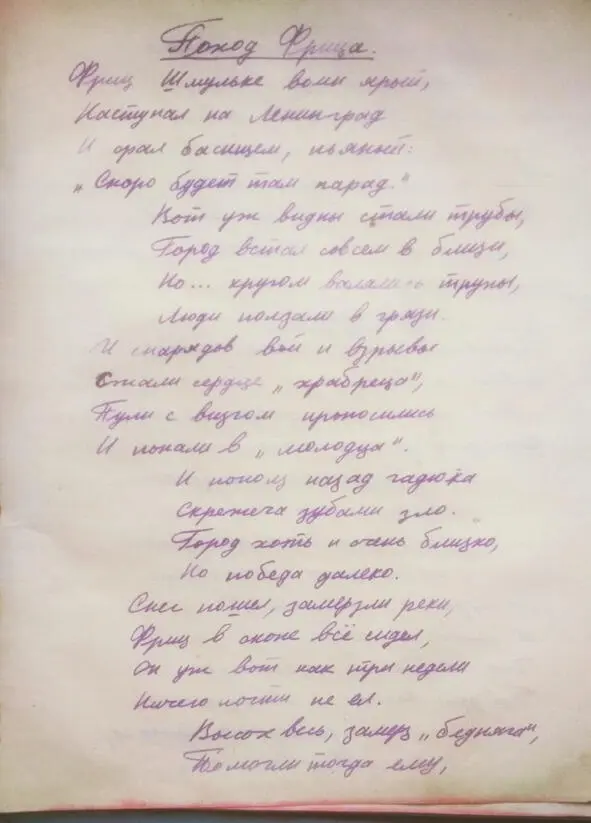 Поход Фрица.
Фриц Шмульке воин ярый,
Наступал на Ленинград
И орал басищем, пьяный:
„Скоро будет там парад."
Вот уж видны стали трубы,
Город встал совсем в близи,
Но... кругом валались трупы,
Люди ползали в грязи.
И снарядов вой и взрывы
Сжали сердце „храбреца",
Пули с визгом проносились
И попали в „молодца".
И пополз назад гадюка
Скрежеча зубами зло.
Город хоть и очень близко,
Но победа далеко.
Снег пошел, замерзли реки,
Фриц в окопе всё сидел,
Он уж вот как три недели
Ничего почти не ел.
Высох весь, замерз „бедняга",
Помогли тогда ему,